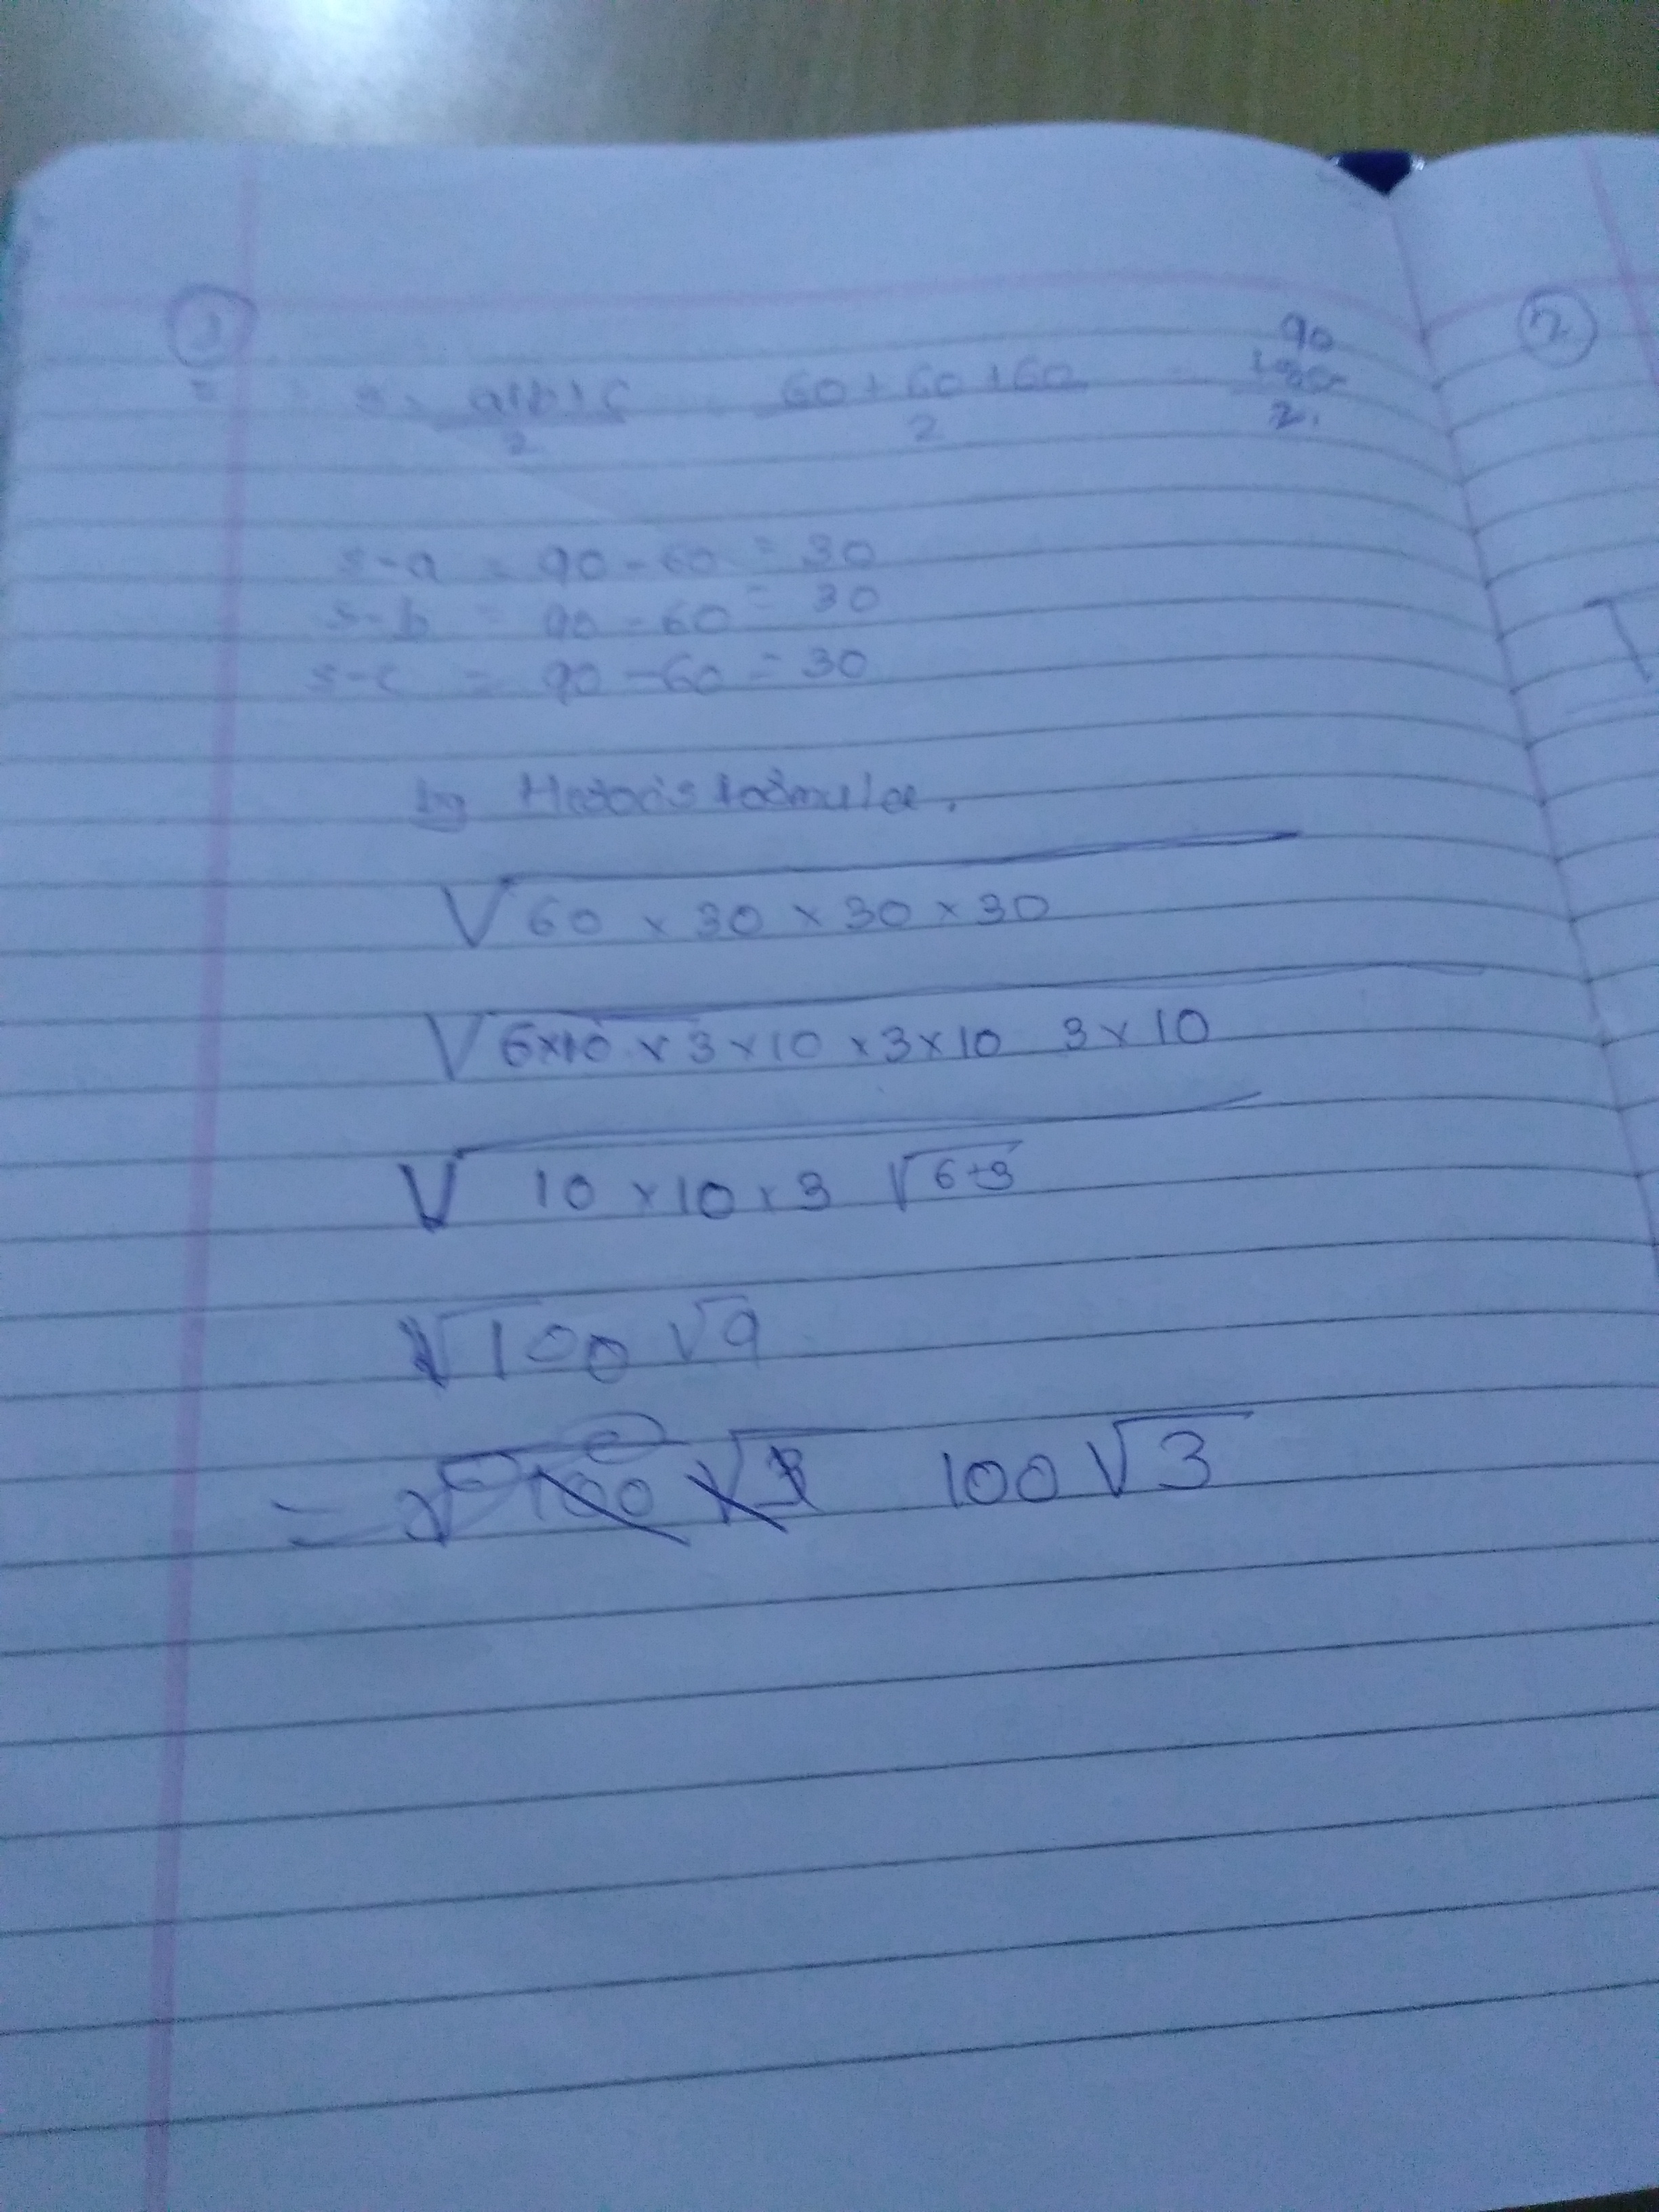 ①
= s = a+b+c/2 = 60+60+60/2 = 180/2 90
s-a = 90-60 = 30
s-b = 90-60 = 30
s-c = 90-60 = 30
by formulae.
√60 × 30 × 30 × 30
√6×10 × 3×10 × 3×10 3×10
√10 × 10 × 3 √6+3
√100 √9
= 100√3
②